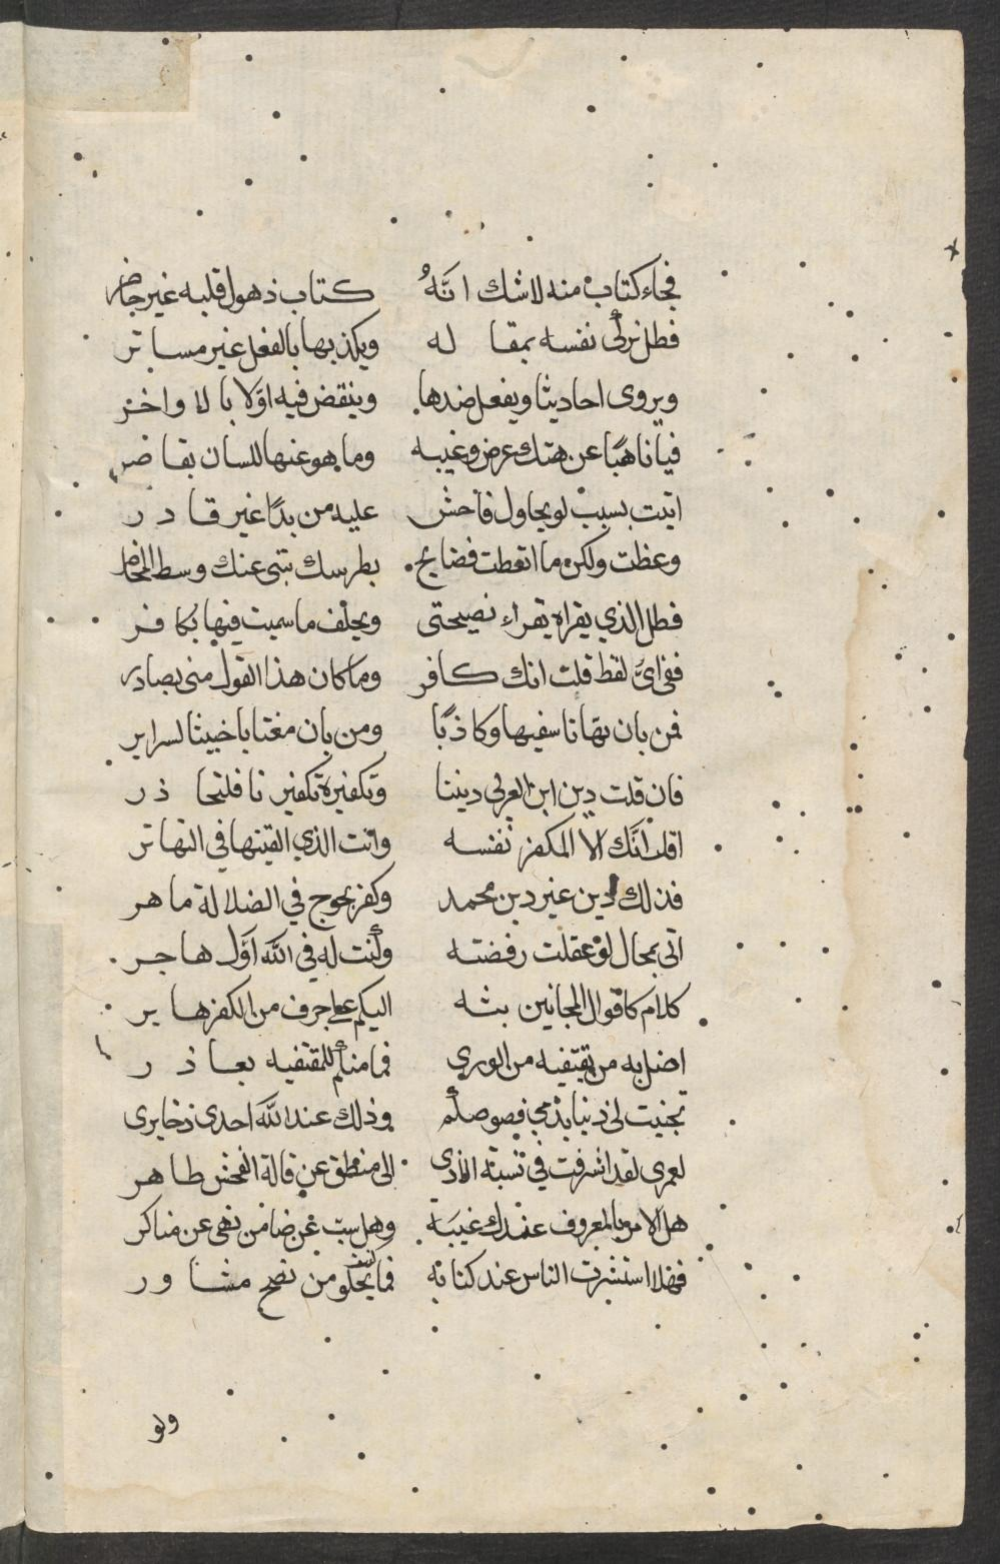 فجاء كتاب منه لا شك انَّهُ كتاب ذهول قلبه غير حاضر
فظل يزكى نفسه بمقا له ويكذبها بالفعل غير مسا تر
ويروى احاديثا ويفعل ضدها وينقض فيه اوّلا با لا واخر
فيا ناهيًا عن هتك عرض وغيبه وما هو عنها للسان بقا صر
اتيت بسبب لو يحاول فاحش عليه من بدًا غير قا د ر
وعظت ولكن ما اتعظت فضايح بطرسك تنبى عنك وسط المحاضر
فظل الذي يقراه يقراء نصيحتى ويحلف ما سميت فيها بكا فر
ففى اىّ لفظ قلت انك كافر وما كان هذا القول منى بصادر
فمن بان بهتانا سفيها وكا ذبًا ومن بان مغتابا خبيثا لسراير
فان قلت دين ابن العربي ديننا وتكفيره تكفيرنا فلتحا ذ ر
اقل انك الا المكفر نفسه وانت الذي القيتها في التها تر
فذلك دين غير دين محمد وكفر لجوج في الضلالة ما هر
اتى بمحال لو عقلت رفضته وكنت له في اللّه اوّل ها جر
كلام كاقوال المجانين بثه اليكم على جرف من الكفر ها ير
اضل به من يقتفيه من الوري فما منكم للمقتفيه بعا ذ ر
تجنيت لى ذنبا بذمى فصوصكم وذلك عند اللّه احدى ذخايرى
لعمرى لقد اشرفت في نسبة الاذى الى منطق عن قالة الفحش طا هر
هل الامر بالمعروف عندك غيبَة وهل سب عرضا من نهى عن مناكر
فهلا استشرت الناس عند كتابه فما يخلو من نصح مشا و ر
ولو